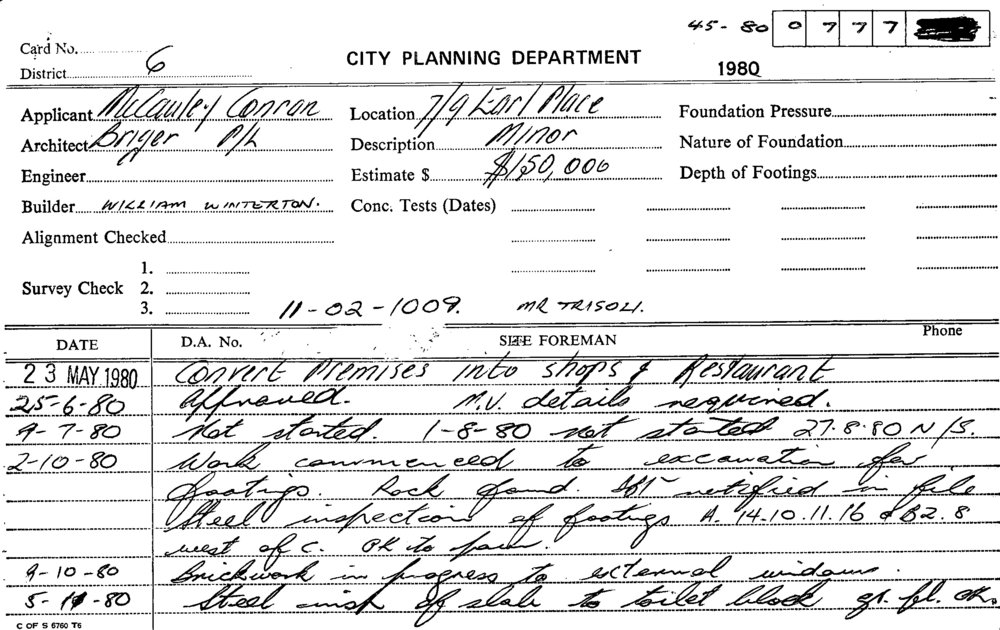 45-80 0 7 7 7
Card No.
District 6
CITY PLANNING DEPARTMENT
1980
Applicant McCauley Conran
Location 7/9 Earl Place
Foundation Pressure
Architect Briger P/L
Description Minor
Nature of Foundation
Engineer
Estimate $ $150,000
Depth of Footings
Builder WILLIAM WINTERTON.
Conc. Tests (Dates)
Alignment Checked
1.
Survey Check 2.
3.
11-02-1009. MR TRISOLI.
DATE D.A. No. SITE FOREMAN Phone
23 MAY 1980 Convert Premises into shops & Restaurant
25-6-80 Approved. M.V. details required.
9-7-80 Not started. 1-8-80 not started 27.8.80 N/S.
2-10-80 Work commenced to excavation for
footings. Rock found. notified in file
Steel inspection of footings A. 14.10.11.16 & B2.8
west of C. OK to pour.
9-10-80 Brickwork in progress to external windows.
5-11-80 Steel insp of slab to toilet block gr. fl. OK.
C OF S 6760 T6